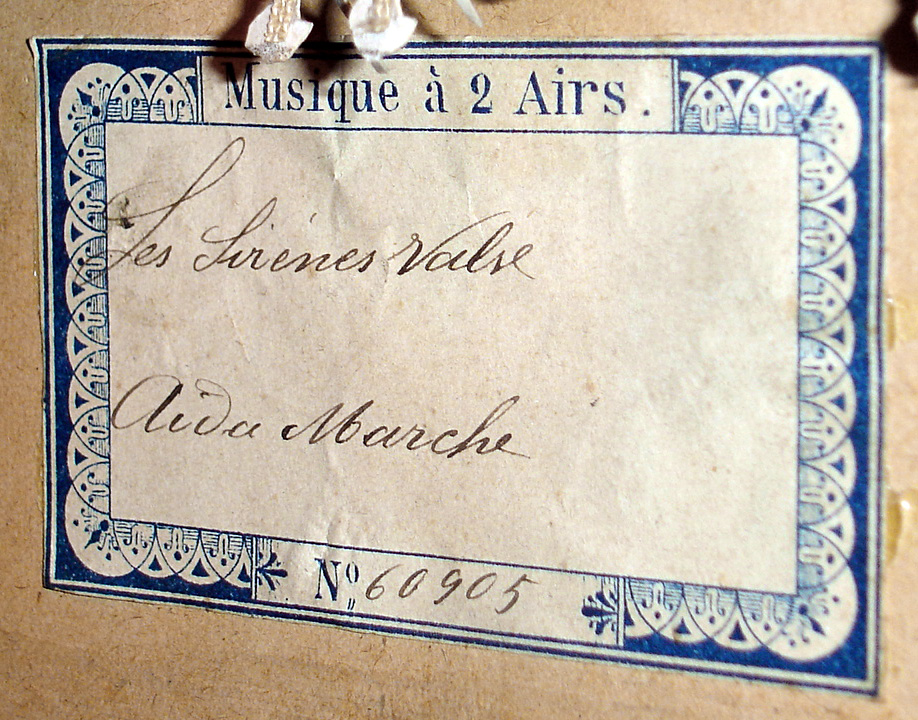 Musique à 2 Airs.
Les Sirénes Valse
Aida Marche
Nº 60905